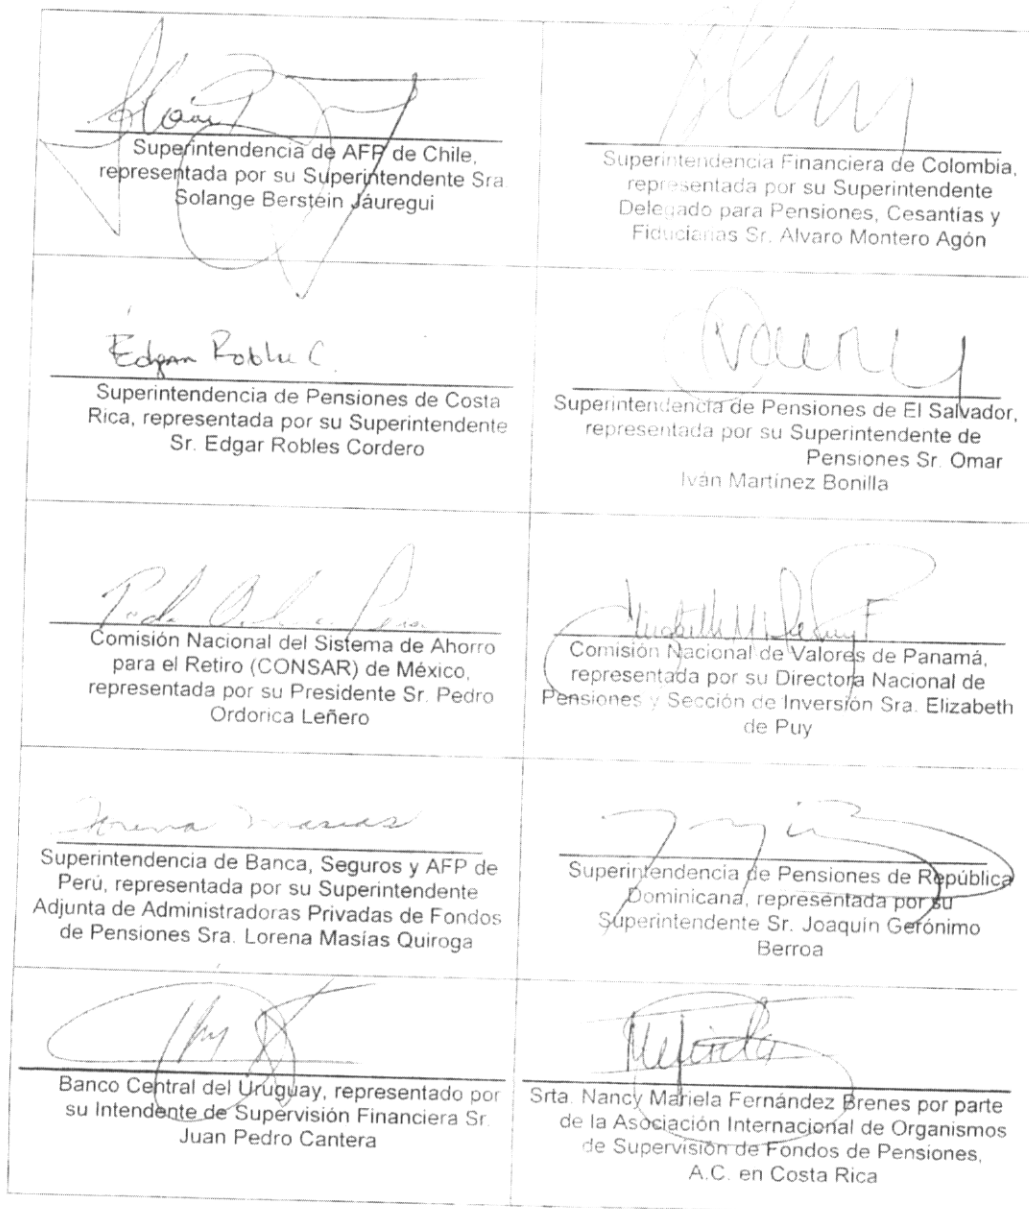 Superintendencia de AFP de Chile,
representada por su Superintendente Sra.
Solange Berstein Jáuregui
Superintendencia Financiera de Colombia,
representada por su Superintendente
Delegado para Pensiones, Cesantías y
Fiduciarias Sr. Alvaro Montero Agón
Edgar Robles C.
Superintendencia de Pensiones de Costa
Rica, representada por su Superintendente
Sr. Edgar Robles Cordero
Superintendencia de Pensiones de El Salvador,
representada por su Superintendente de
Pensiones Sr. Omar
Iván Martínez Bonilla
Comisión Nacional del Sistema de Ahorro
para el Retiro (CONSAR) de México,
representada por su Presidente Sr. Pedro
Ordorica Leñero
Comisión Nacional de Valores de Panamá,
representada por su Directora Nacional de
Pensiones y Sección de Inversión Sra. Elizabeth
de Puy
Lorena Masias
Superintendencia de Banca, Seguros y AFP de
Perú, representada por su Superintendente
Adjunta de Administradoras Privadas de Fondos
de Pensiones Sra. Lorena Masías Quiroga
Superintendencia de Pensiones de República
Dominicana, representada por su
Superintendente Sr. Joaquín Gerónimo
Berroa
Banco Central del Uruguay, representado por
su Intendente de Supervisión Financiera Sr.
Juan Pedro Cantera
Srta. Nancy Mariela Fernández Brenes por parte
de la Asociación Internacional de Organismos
de Supervisión de Fondos de Pensiones,
A.C. en Costa Rica